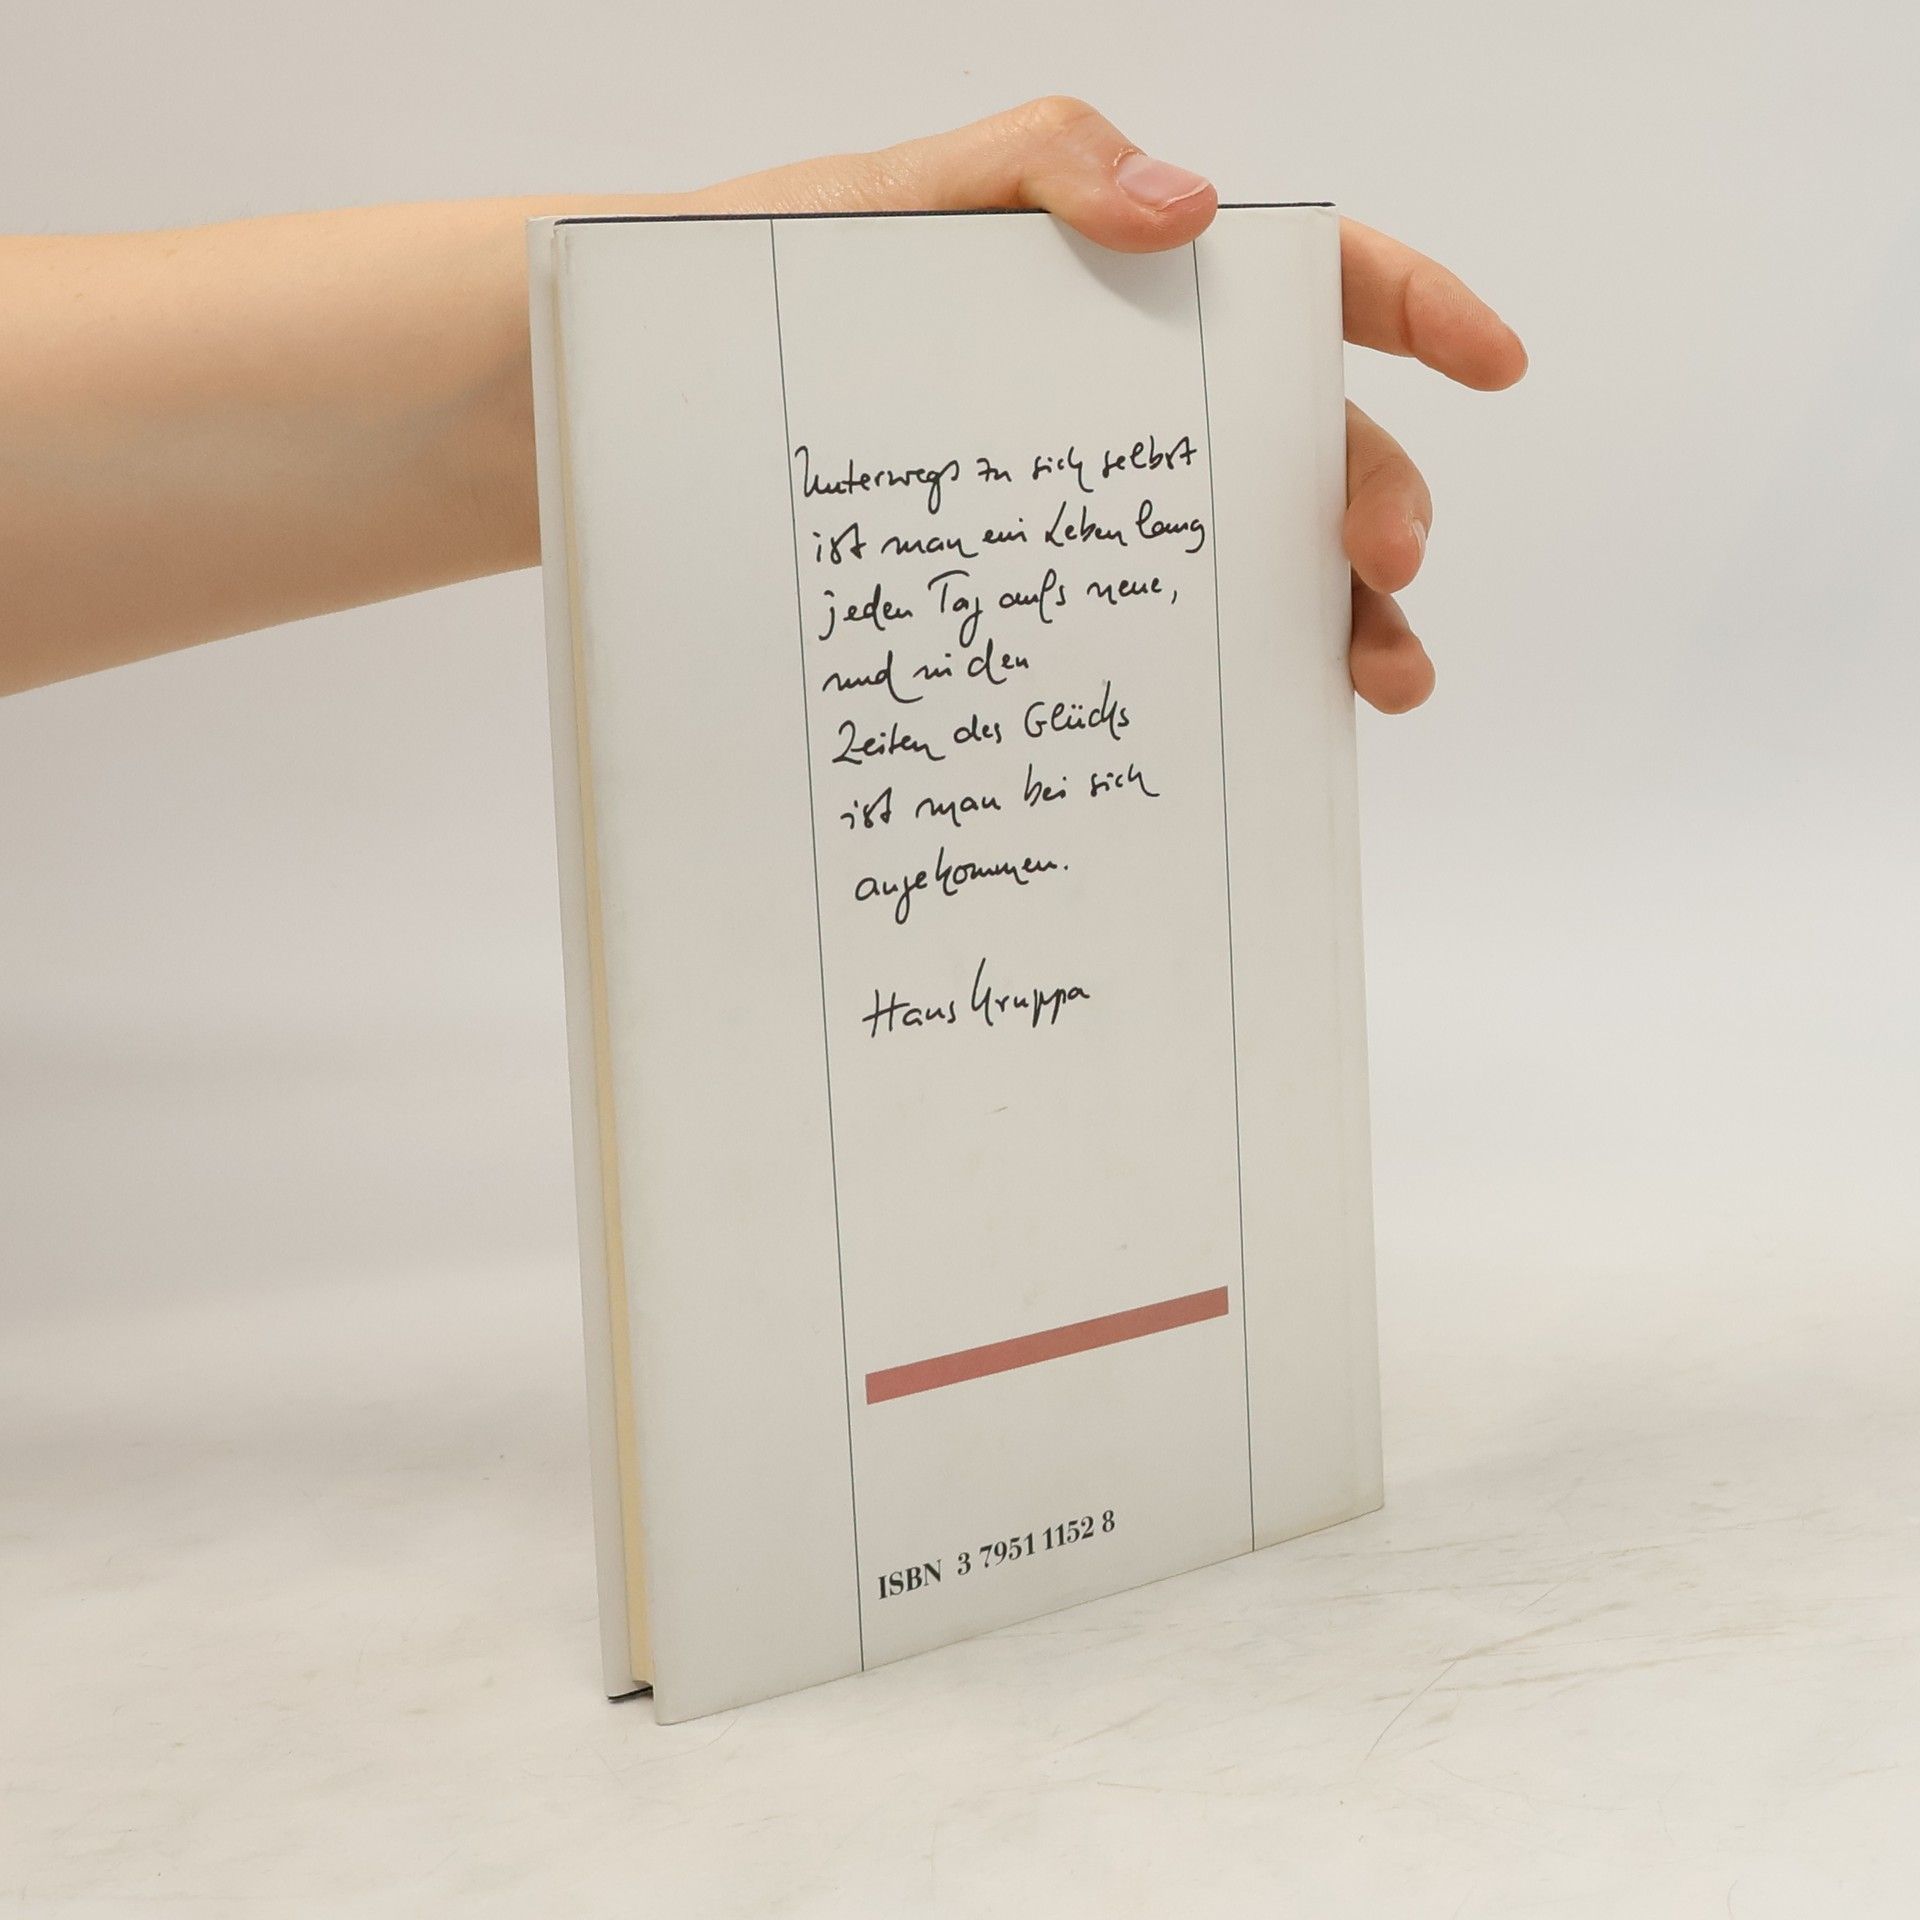 Unterwegs zu sich selbst
ist man ein Leben lang
jeden Tag aufs neue,
und in den
Zeiten des Glücks
ist man bei sich
angekommen.
Hans Kruppa
ISBN 3 7951 1152 8